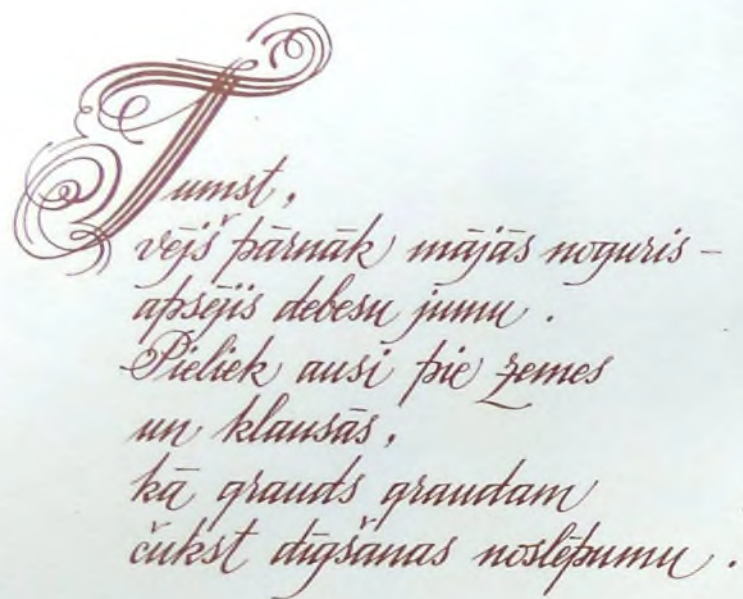 Tumst,
vējš pārnāk mājās noguris –
apsējis debesu jumu.
Pieliek ausi pie zemes
un klausās,
kā grauds graudam
čukst dīgšanas noslēpumu.